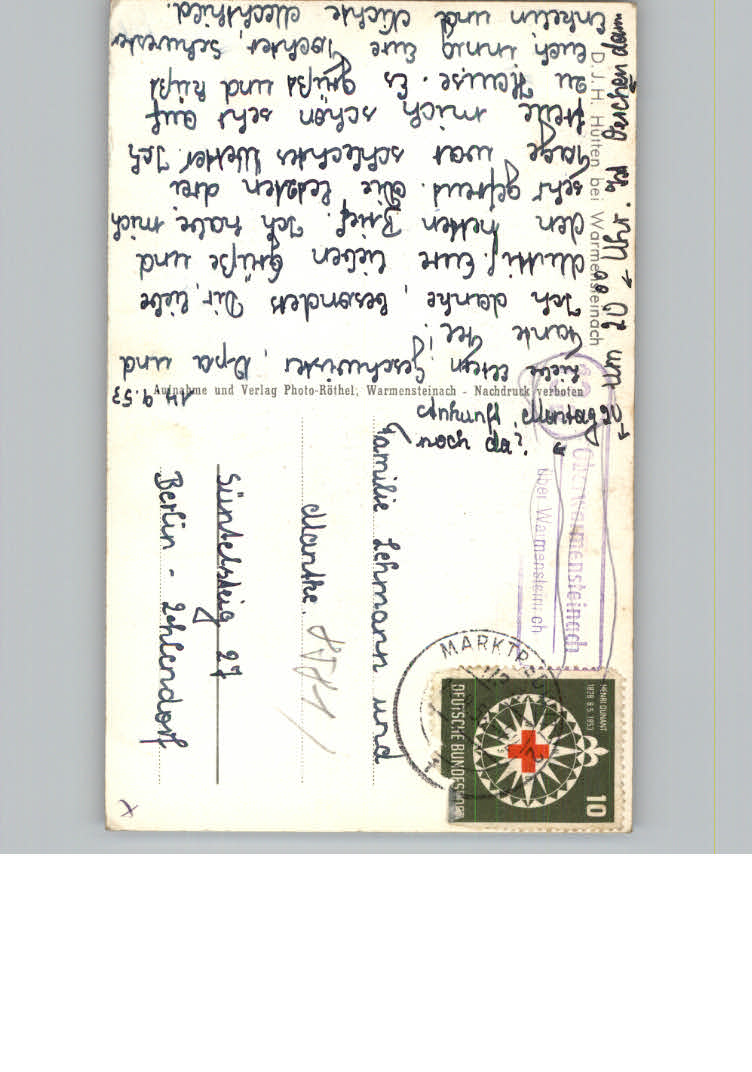 14.9.53
Liebe Eltern, Geschwister, Opa und
Tante !
Ich danke, besonders Dir, liebe
Mutti, Eure lieben Grüße und
den netten Brief. Ich habe mich
sehr gefreut. Die letzten drei
Tage war schlechtes Wetter. Ich
freue mich schon sehr auf
zu Hause. Es grüßt und küßt
euch innig eure Tochter, Schwester
Enkelin und Nichte Mechthild.
um 20 00 Uhr.
D.J.H. Hütten bei Warmensteinach
Aufnahme und Verlag Photo-Röthel, Warmensteinach - Nachdruck verboten
Familie Lehmann und
Mantke.
Süntelsteig 27
Berlin - Zehlendorf
Oberwarmensteinach
über Warmensteinach
MARKTRED
HENRI DUNANT
1828 8.5. 1953
10
DEUTSCHE BUNDESPOST
x